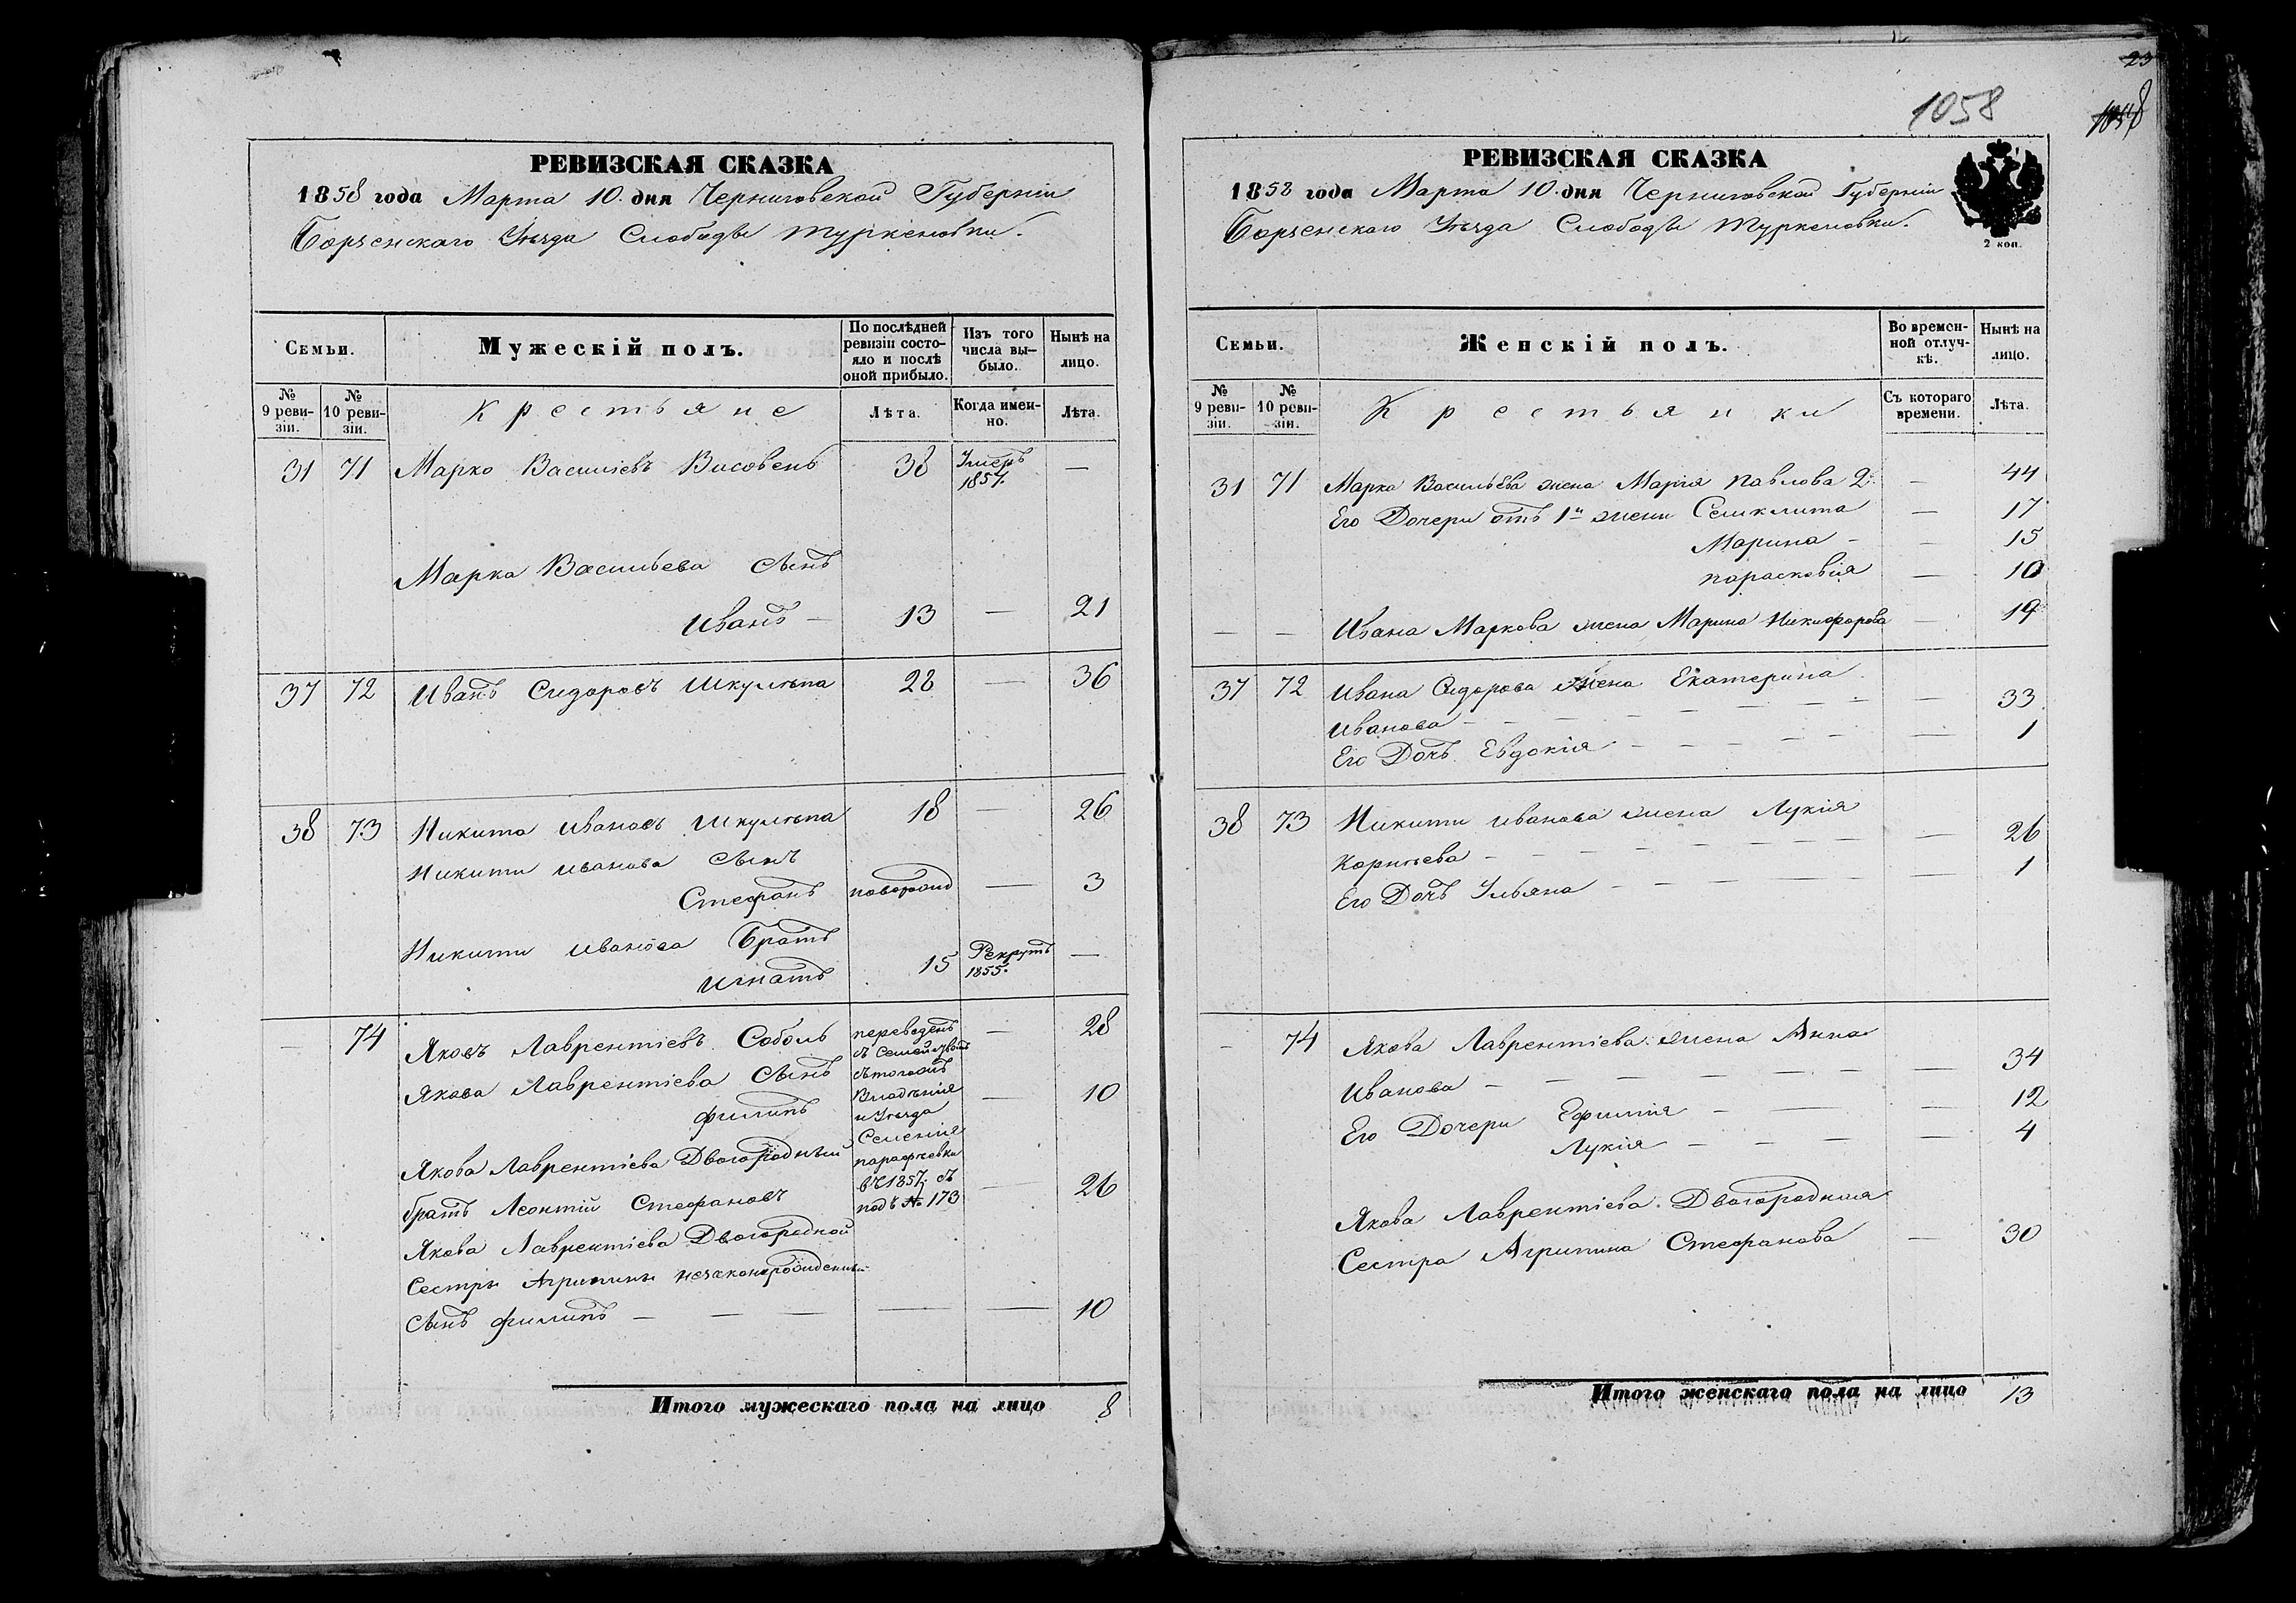 РЕВИЗСКАЯ СКАЗКА
1858 года Марта 10. дня Черниговской Губерніи
Борзенскаго Уѣзда Слободы Туркеновки.
Семьи.
Мужескій полъ.
По послѣдней ревизіи состояло и послѣ оной прибыло.
Изъ того числа выбыло.
Нынѣ на лицо.
№ 9 ревизіи.
№ 10 ревизіи.
Крестьяне
Лѣта.
Когда именно.
Лѣта.
31 71 Марко Василіевъ Висовень 38 Умеръ 1857. —
Марка Васильева Сынъ
Иванъ — 13 — 21
37 72 Иванъ Сидоровъ Шкулѣпа 28 — 36
38 73 Никита Ивановъ Шкулѣпа 18 — 26
Никиты Иванова Сынъ
Стефанъ новорожд — 3
Никиты Иванова Братъ
Игнатъ 15 Рекрутъ 1855. —
— 74 Яковъ Лаврентіевъ Соболь переведенъ — 28
съ Семействомъ
Якова Лаврентіева Сынъ съ тогожъ
Филипъ Владѣнія и Уѣзда — 10
Селенія
Якова Лаврентіева Двоюродный парафіевки
братъ Леонтій Стефановъ въ 1857. съ подъ № 173 — 26
Якова Лаврентіева Двоюродной
Сестры Агрипины незаконнорожденный
Сынъ Филипъ — — — — — 10
Итого мужескаго пола на лицо 8
23
1058
1058
РЕВИЗСКАЯ СКАЗКА
1858 года Марта 10. дня Черниговской Губерніи
Борзенскаго Уѣзда Слободы Туркеновки.
2 коп.
Семьи.
Женскій полъ.
Во временной отлучкѣ.
Нынѣ на лицо.
№ 9 ревизіи.
№ 10 ревизіи.
Крестьянки
Съ котораго времени.
Лѣта.
31 71 Марка Васильева жена Марія Павлова 2 — 44
Его Дочери отъ 1й жены Семклита — 17
Марина — — 15
Парасковія — 10
— — Ивана Маркова жена Марина Никифорова — 19
37 72 Ивана Сидорова жена Екатерина
Иванова — — — — — — 33
Его Дочь Евдокія — — — — — 1
38 73 Никиты Иванова жена Лукія
Корнѣева — — — — — — 26
Его Дочь Ульяна — — — — — 1
— 74 Якова Лаврентіева жена Анна
Иванова — — — — — — 34
Его Дочери Ефимія — — — 12
Лукія — — — — 4
Якова Лаврентіева Двоюродная
Сестра Агрипина Стефанова — 30
Итого женскаго пола на лицо 13